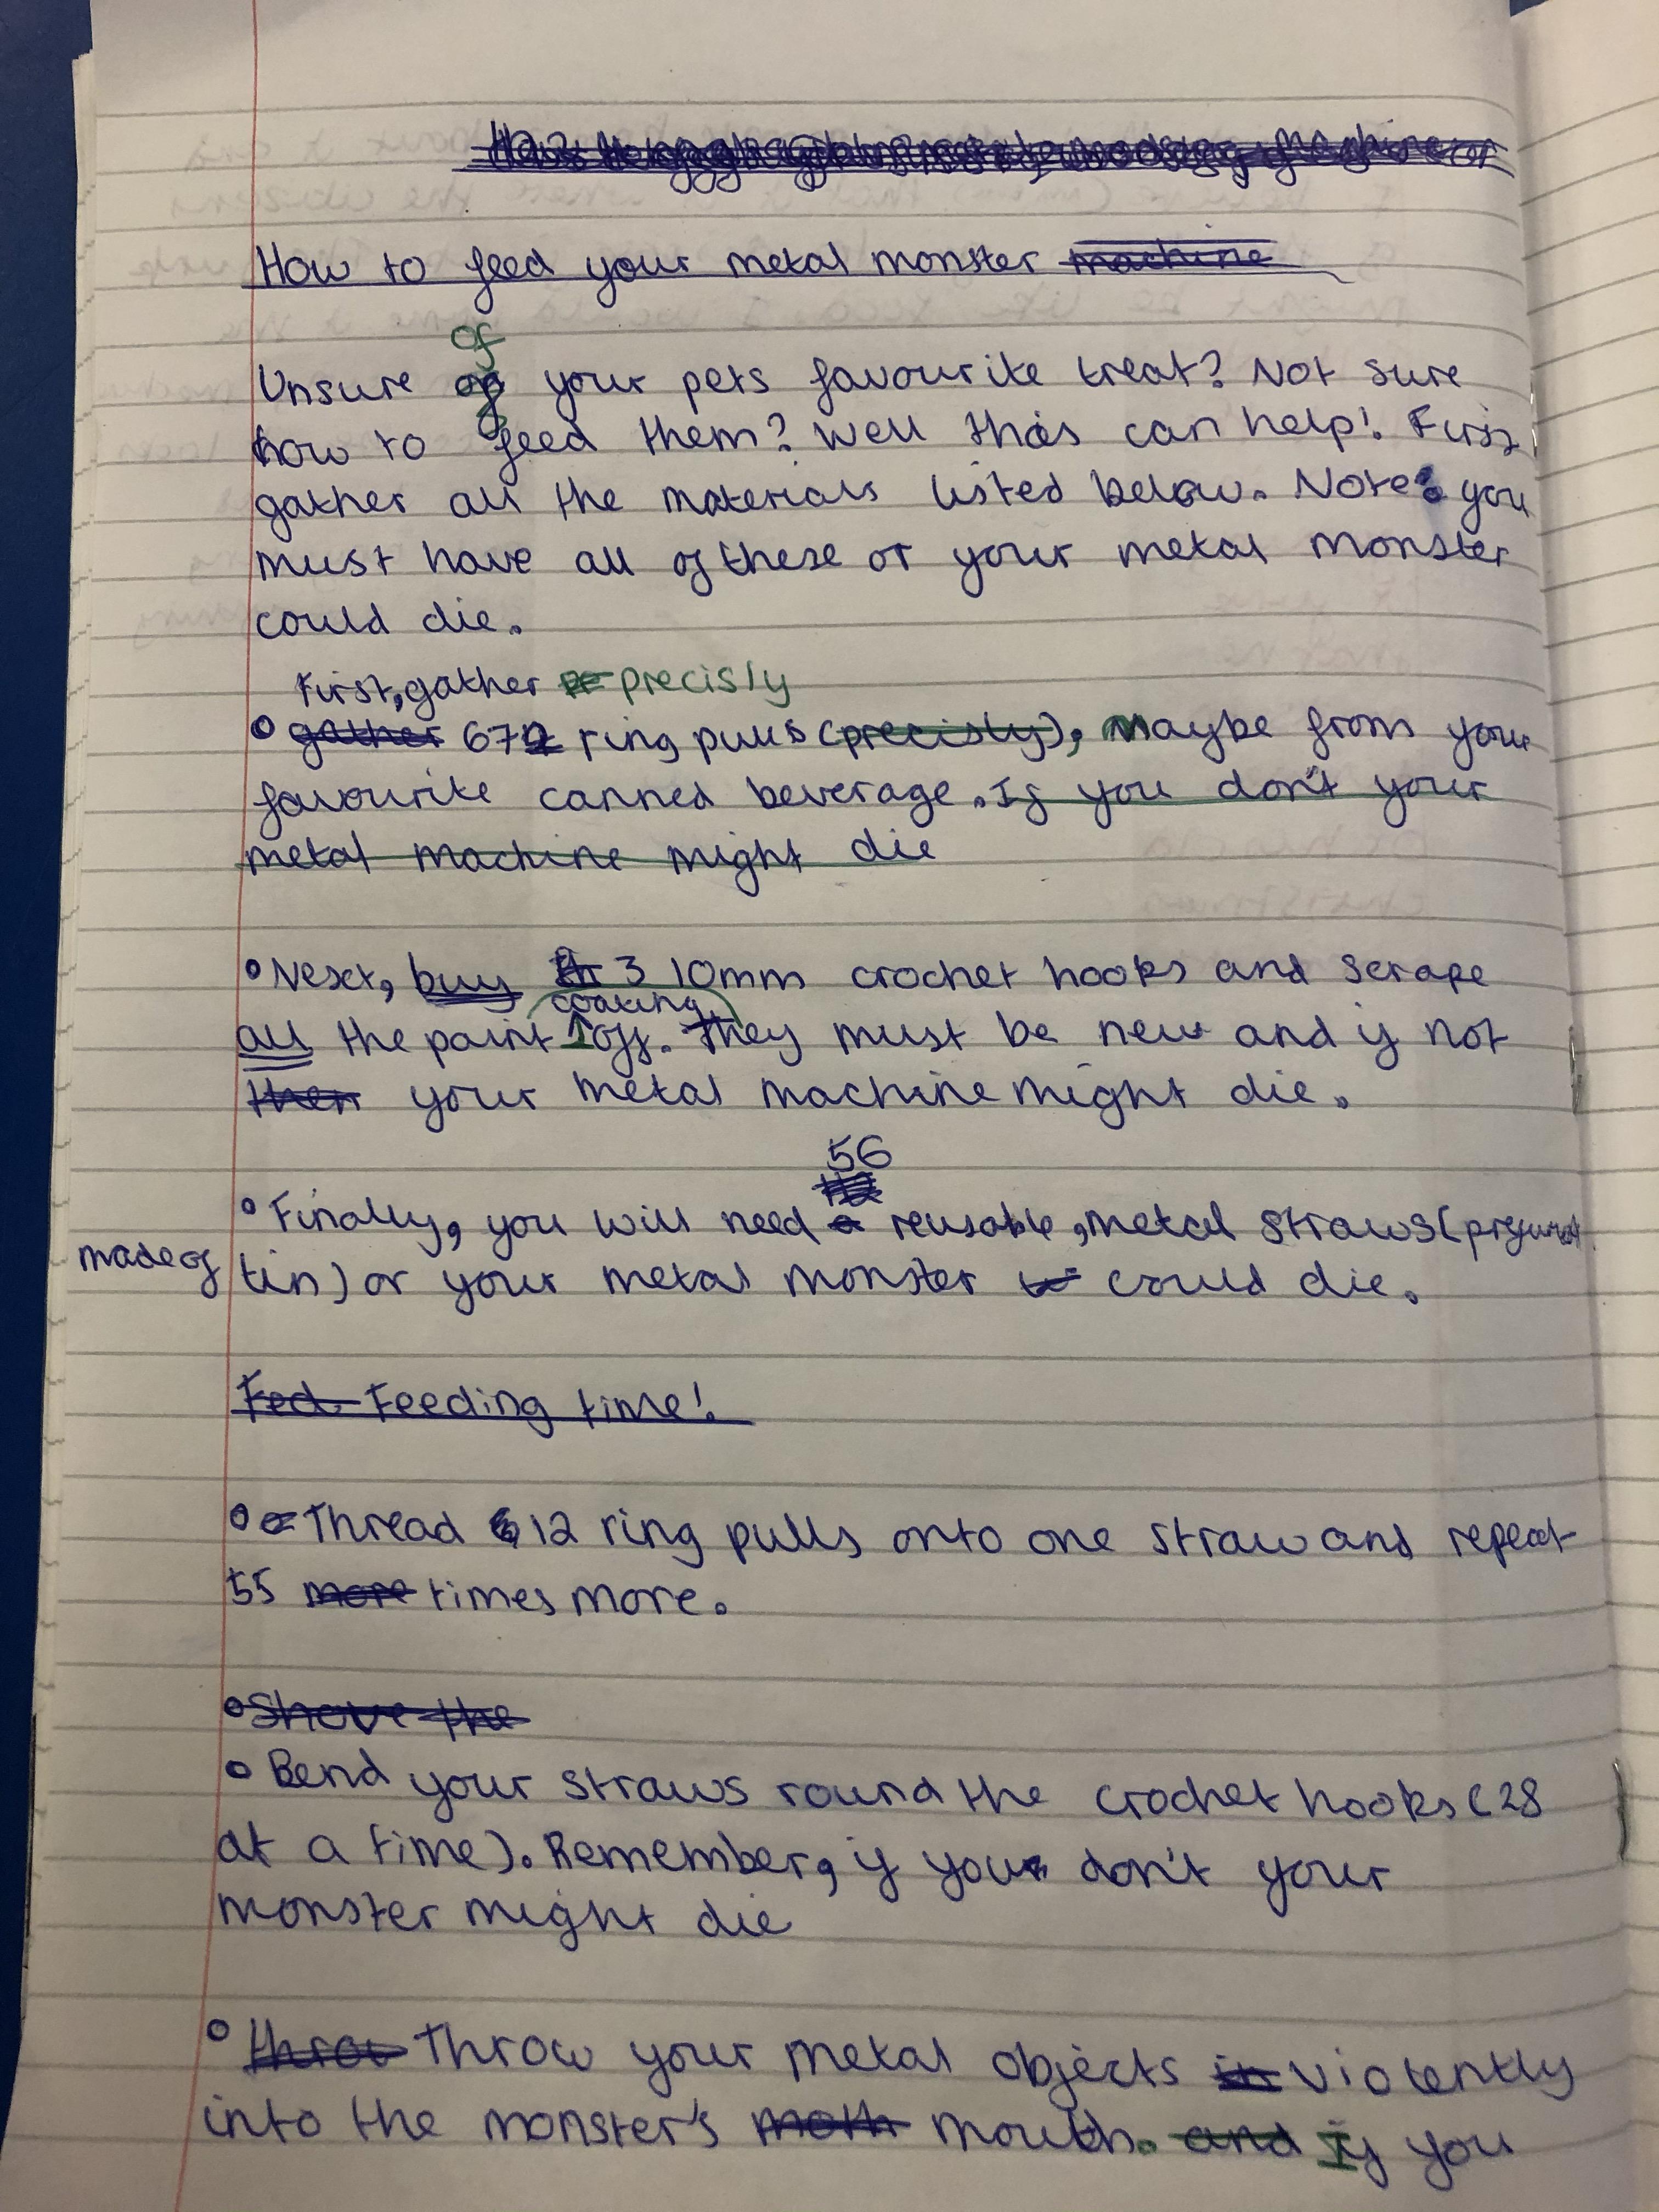 How to feed your metal monster machine
of
Unsure of your pets favourite treat? Not sure
how to feed them? Well this can help! First
gather all the materials listed below. Note: you
must have all of these or your metal monster
could die.
First, gather pre precisly
gather 672 ring pulls (precisly), Maybe from your
favourite canned beverage. If you don't your
metal machine might die
Next, buy 3 10mm crochet hooks and scrape
coating
all the paint ↑ off. They must be new and if not
then your metal machine might die.
56
Finally, you will need a reusable, metal straws (
made of tin) or your metal monster could die.
Fed Feeding time!
Thread 12 ring pulls onto one straw and repeat
55 more times more.
Shove the
Bend your straws round the crochet hooks (28
at a time). Remember, if you don't your
monster might die
throw Throw your metal objects in violently
into the monster's moth mouth. and If you